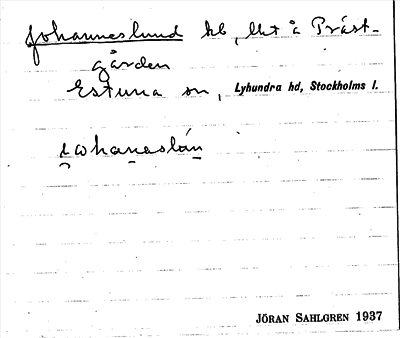 Johanneslund hb, Ut å Präst-
gården
Estuna sn, Lyhundra hd, Stockholms l.
JÖRAN SAHLGREN 1937